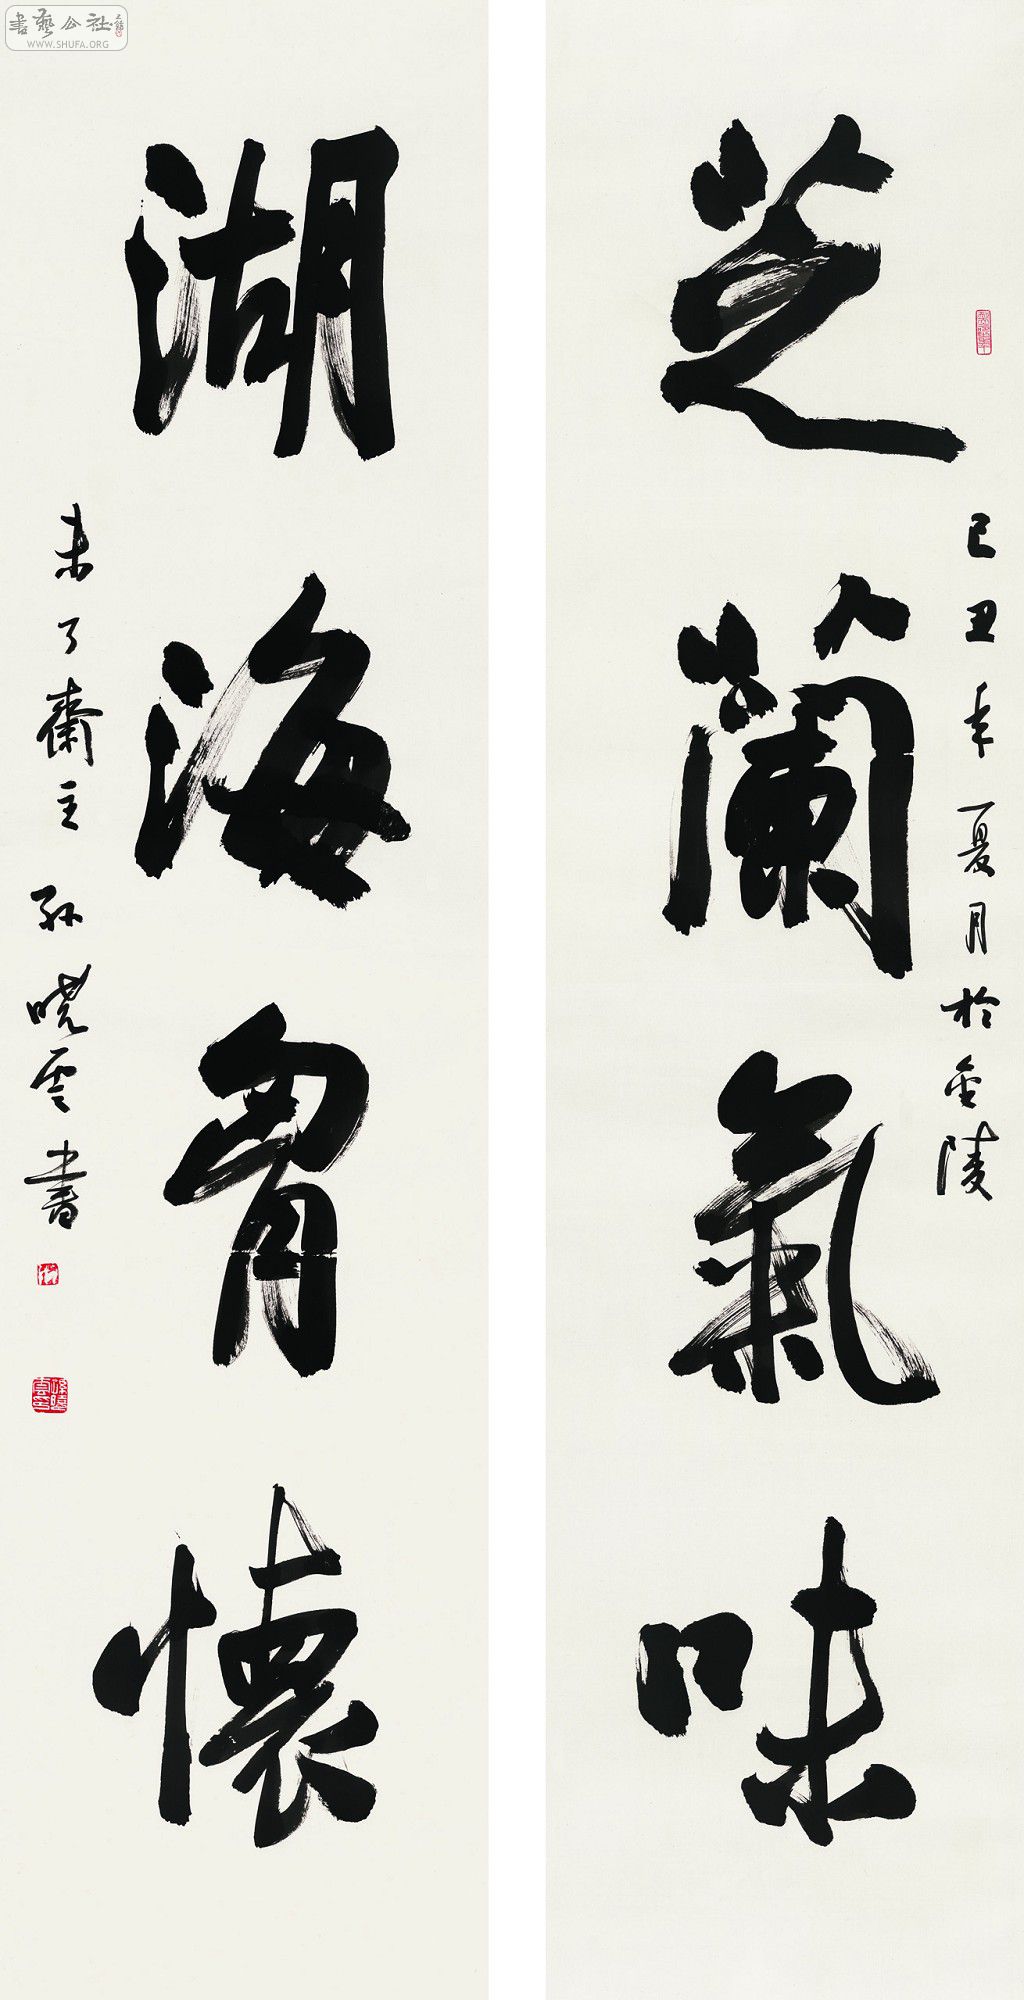 芝蘭氣味
己丑年夏月於金陵
湖海胷懷
未了齋主孫曉雲書
書藝公社
WWW.SHUFA.ORG